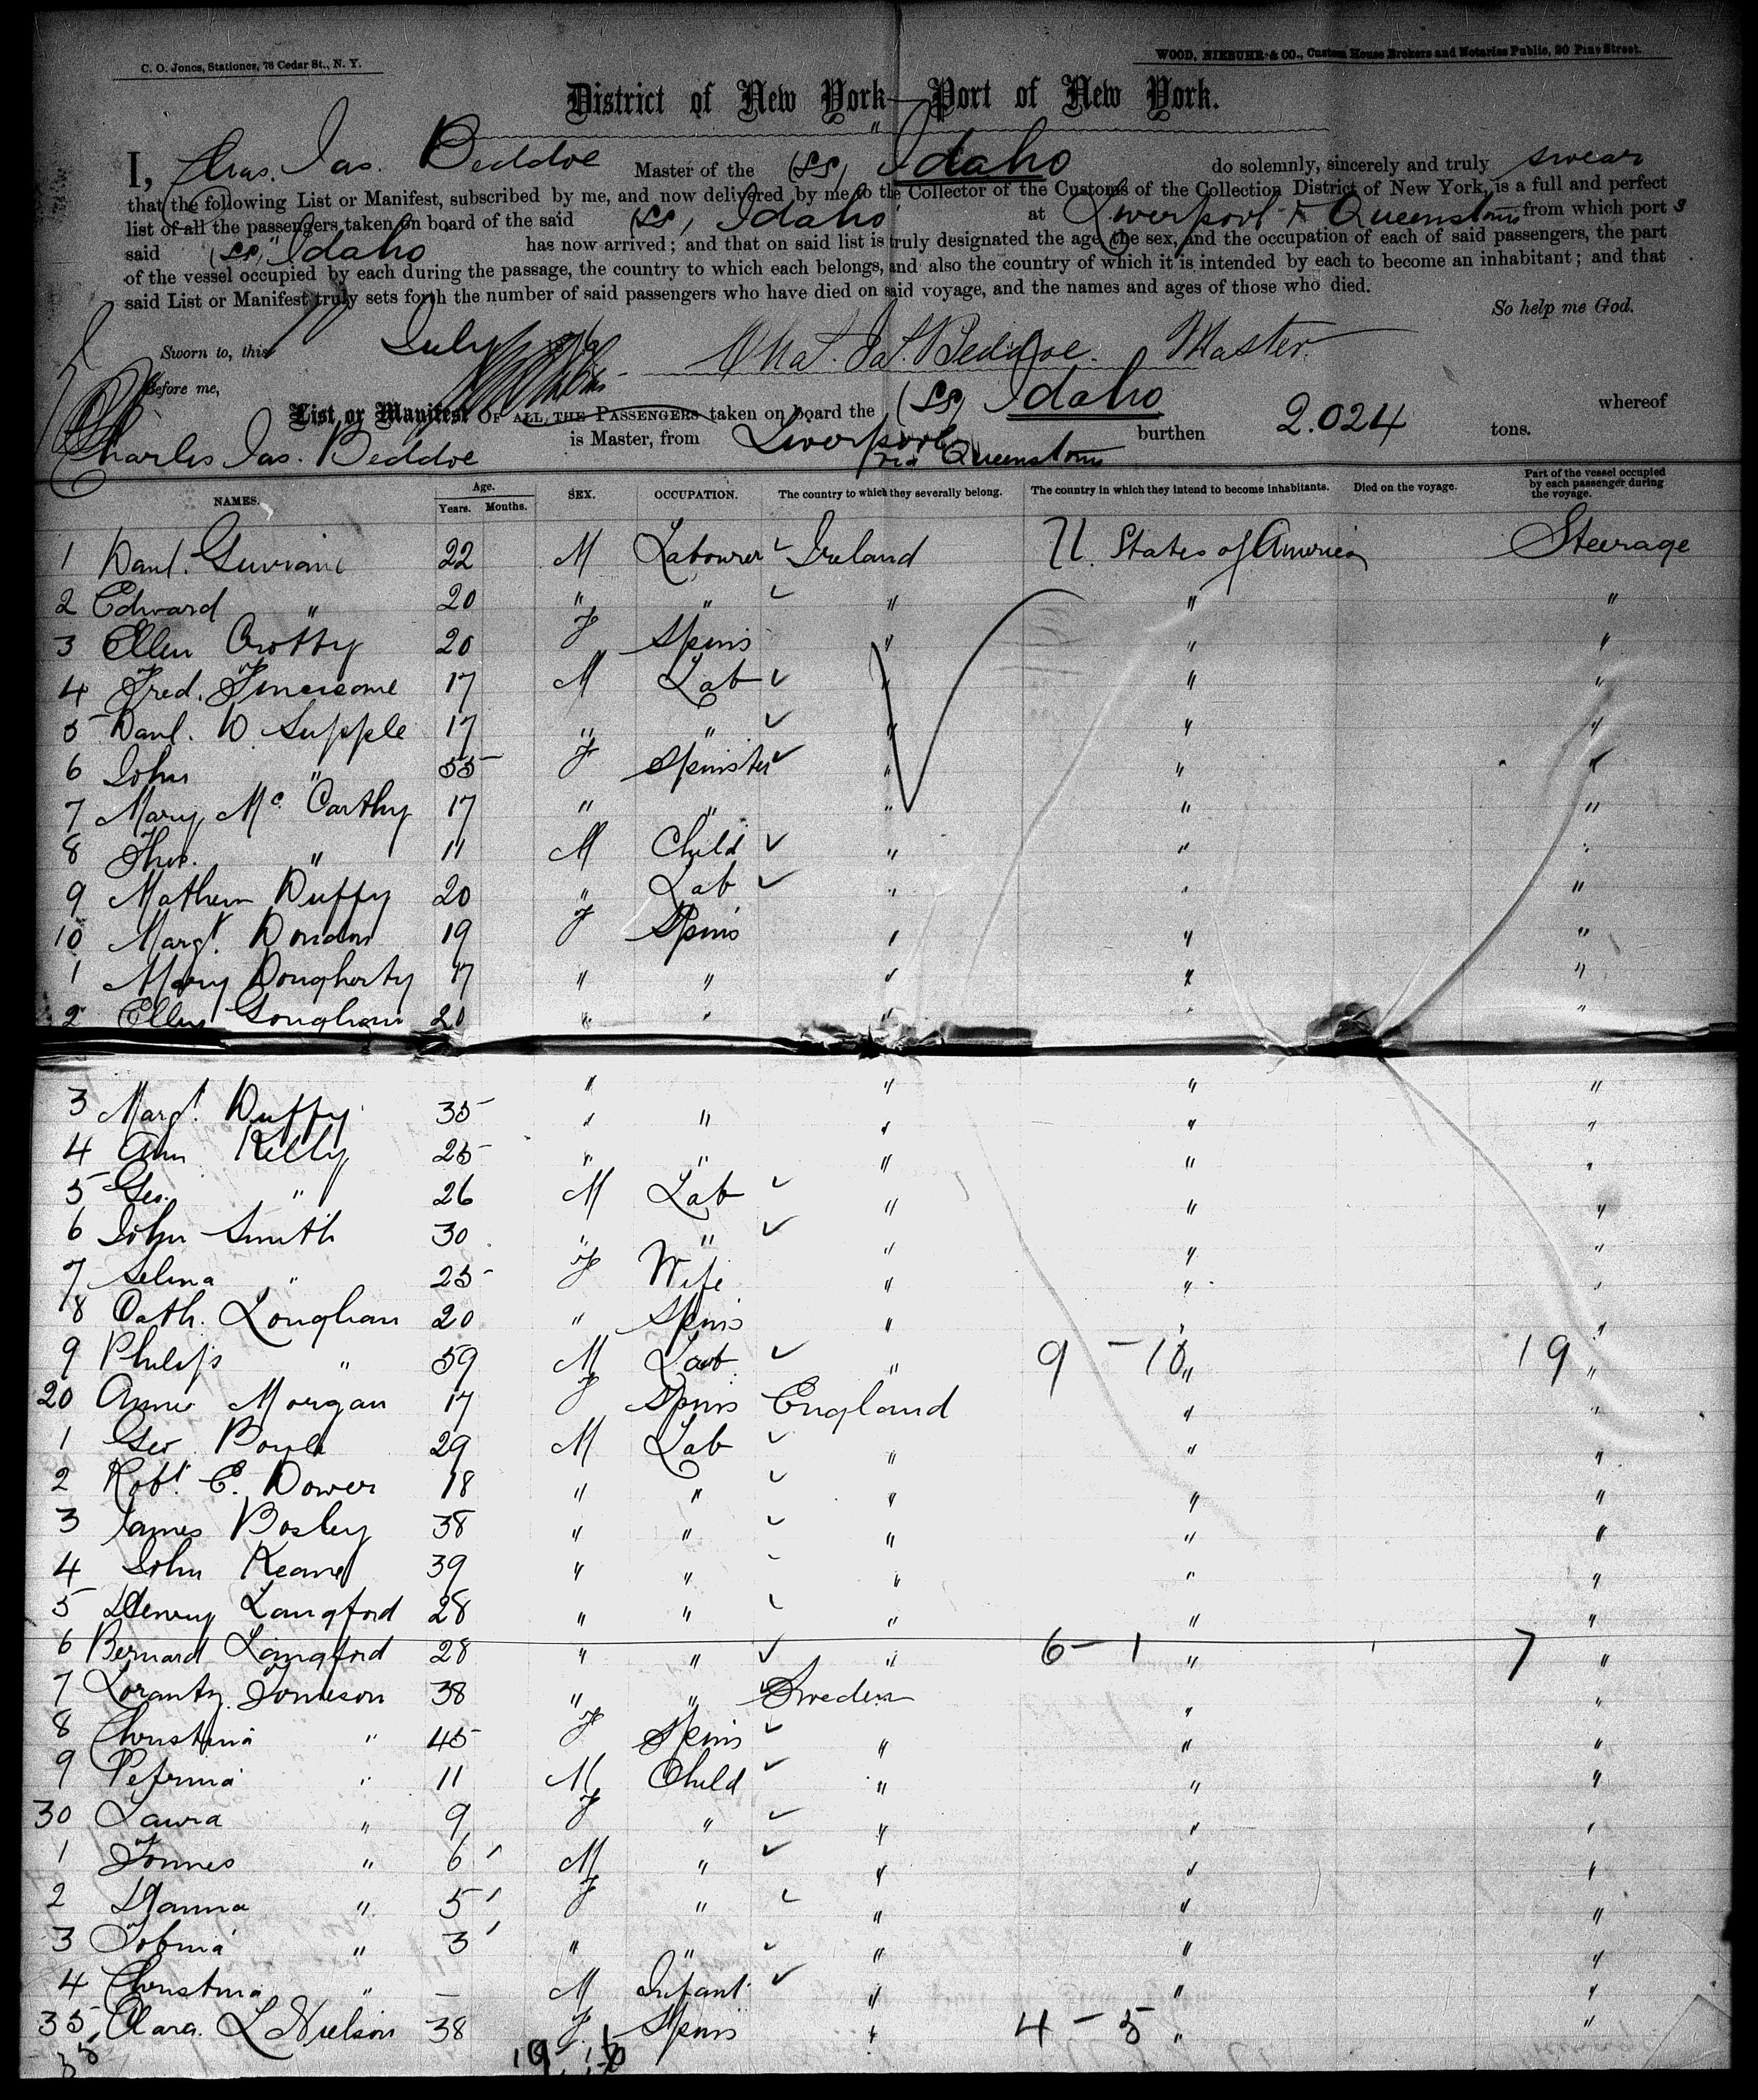 C. O. Jones, Stationer, 78 Cedar St., N. Y.
WOOD, NIEBUHR & CO., Custom House Brokers and Notaries Public, 20 Pine Street.
District of New York—Port of New York.
I, Chas. Jas. Beddoe Master of the (SS) Idaho do solemnly, sincerely and truly swear
that the following List or Manifest, subscribed by me, and now delivered by me to the Collector of the Customs of the Collection District of New York, is a full and perfect
list of all the passengers taken on board of the said (SS) Idaho at Liverpool & Queenstown from which port s
said (SS) Idaho has now arrived; and that on said list is truly designated the age, the sex, and the occupation of each of said passengers, the part
of the vessel occupied by each during the passage, the country to which each belongs, and also the country of which it is intended by each to become an inhabitant; and that
said List or Manifest truly sets forth the number of said passengers who have died on said voyage, and the names and ages of those who died.
So help me God.
Sworn to, this July Chas. Jas. Beddoe. Master.
Before me,
List or Manifest OF ALL THE PASSENGERS taken on board the (SS) Idaho whereof
Charles Jas. Beddoe is Master, from Liverpool via Queenstown burthen 2.024 tons.
NAMES. Age. Years. Months. SEX. OCCUPATION. The country to which they severally belong. The country in which they intend to become inhabitants. Died on the voyage. Part of the vessel occupied by each passenger during the voyage.
1 Danl. 22 M Labourer Ireland U. States of America Steerage
2 Edward " 20 " " " " "
3 Ellen Crotty 20 F Spins " " "
4 Fred. 17 M Lab " " "
5 Danl. D Supple 17 " " " " "
6 John " 55 F Spinster " " "
7 Mary Mc Carthy 17 " " " " "
8 Thos. " 11 M Child " " "
9 Mathew Duffy 20 " Lab " " "
10 Margt. 19 F Spins " " "
1 Mary Dougherty 17 " " " " "
2 Ellen 20 " " " " "
3 Margt. Duffy 35 " " " " "
4 Ann Kelly 25 " " " " "
5 Geo. " 26 M Lab " " "
6 John Smith 30 " " " " "
7 Selina " 25 F Wife " " "
8 Cath. Loughan 20 " Spins " " "
9 Philip " 59 M Lab " 9 - 10 " 19 "
20 Annie Morgan 17 F Spins England " "
1 Geo Boyle 29 M Lab " " "
2 Robt. E. Dower 18 " " " " "
3 James Bosley 38 " " " " "
4 John Keane 39 " " " " "
5 Henry Langford 28 " " " " "
6 Bernard Langford 28 " " " 6 - 1 " 7 "
7 38 " " Sweden " "
8 Christina " 45 F Spins " " "
9 " 11 M Child " " "
30 Laura " 9 F " " " "
1 " 6 M " " " "
2 Hanna " 5 F " " " "
3 " 3 " " " " "
4 Christina " — M Infant " " "
35 Clara. L Nielson 38 F Spins " 4 - 5 " "